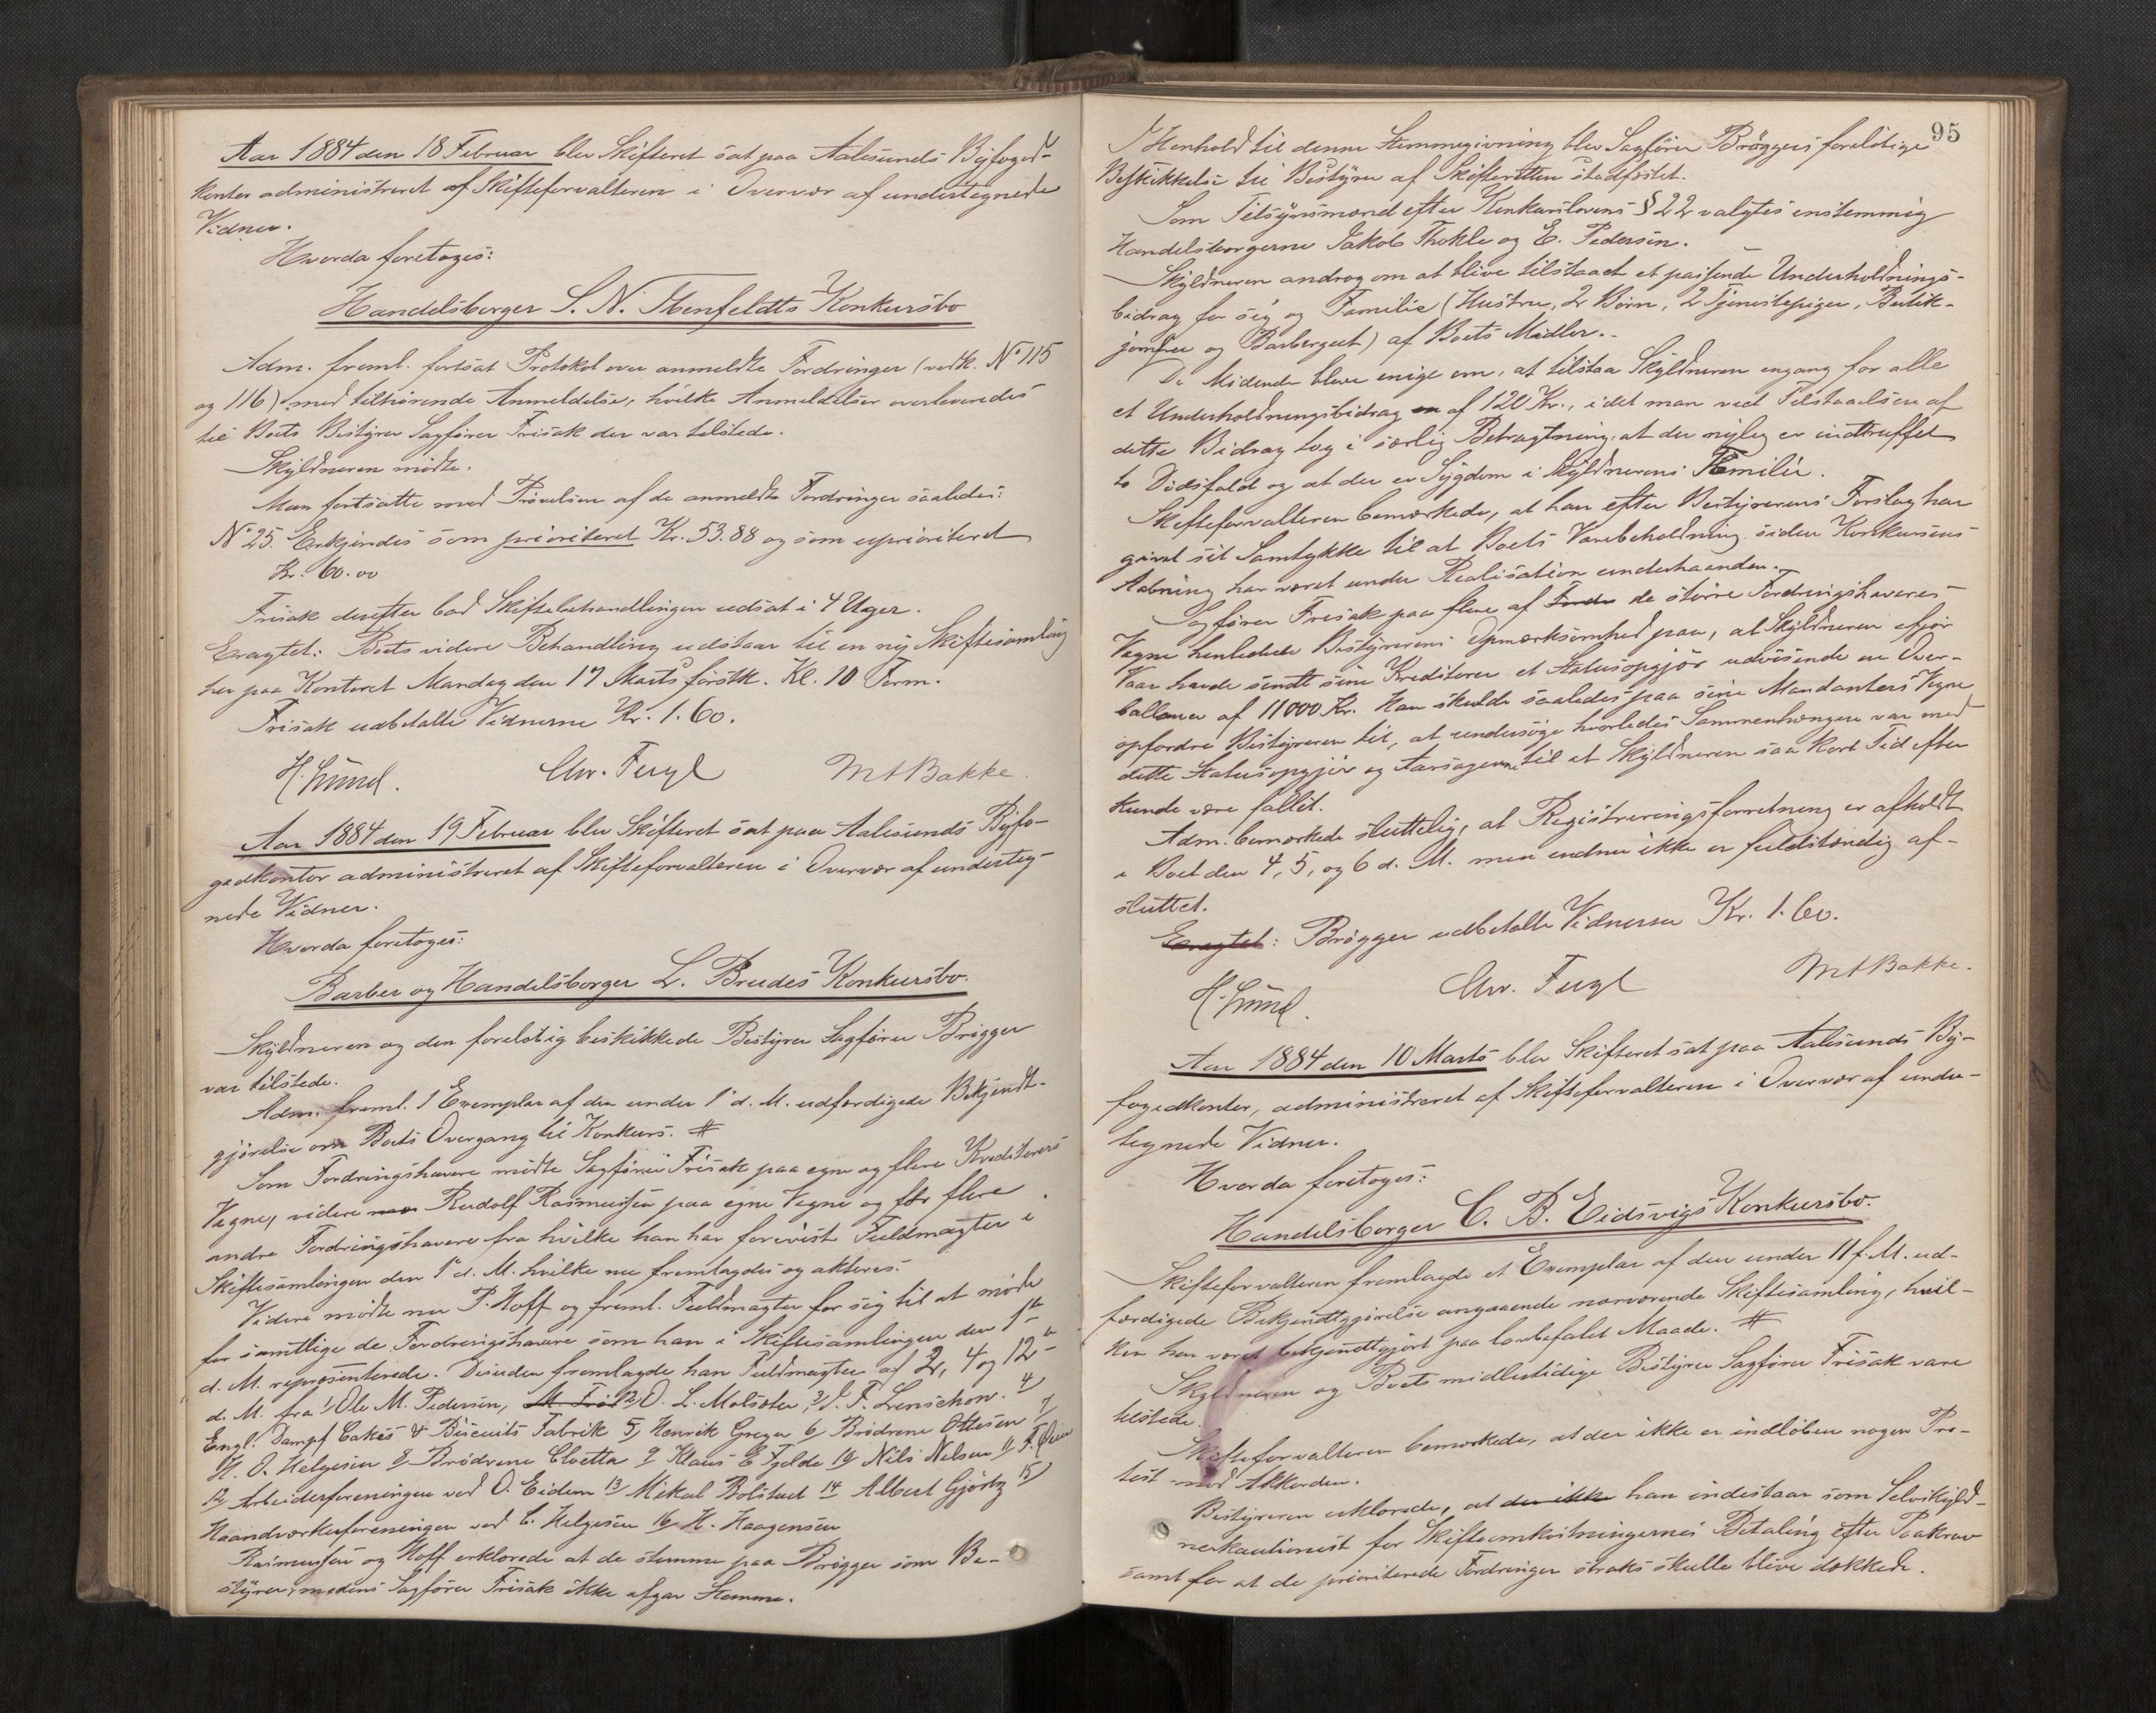 Aar 1884 den 18 Februar blev Skifteret sat paa Aalesunds Byfoged-
kontor administreret af Skifteforvalteren i Overvær af undertegnede
Vidner.
Hvorda foretoges:
Handelsborger S. N. Konkursbo
Adm. freml. fortsat Protokol over anmeldte Fordringer (vedk. No 115
og 116) med tilhørende Anmeldelse, hvilke Anmeldelser overleveredes
til Boets Bestyrer Sagfører Frisak der var tilstede.
Skyldneren mødte.
Man fortsatte med Prøvelsen af de anmeldte Fordringer saaledes:
No 25. Erkjendes som prioriteret Kr. 53.88 og som uprioriteret
Kr. 60.00
Frisak derefter bad Skiftebehandlingen udsat i 4 Uger.
Eragtet: Boets videre Behandling udstaar til en ny Skiftesamling
her paa Kontoret Mandag den 17 Marts førstk. Kl. 10 Form.
Frisak udbetalte Vidnerne Kr. 1.60.
Chr. Fugl M A Bakke.
Aar 1884 den 19 Februar blev Skifteret sat paa Aalesunds Byfo-
gedkontor administreret af Skifteforvalteren i Overvær af underteg-
nede Vidner.
Hvorda foretoges:
Barber og Handelsborger L. Brudes Konkursbo.
Skyldneren og den foreløtig beskikkede Bestyrer Sagfører Brøgger
var tilstede.
Adm. freml. 1 Exemplar af den under 1' d. M. udfærdigede Bekjendt-
gjørelse om Boets Overgang til Konkurs. #
Som Fordringshavere mødte Sagfører Frisak paa egne og flere Kreditorers
Vegne, videre Rudolf Rasmussen paa egne Vegne og for flere
andre Fordringshavere fra hvilke han har forevist Fuldmagter i
Skiftesamlingen den 1' d. M. hvilke nu fremlagdes og akteres.
Videre mødte nu P. Hoff og freml. Fuldmagter for sig til at møde
for samtlige de Fordringshavere som han i Skiftesamlingen den 1ste
d. M. repræsenterede. Desuden fremlagde han Fuldmagter af 2, 4 og 12te
d. M. fra 1 Ole M. Pedersen, 2) O. L. Molsæter, 3) J. F. Lenschow. 4)
Engl. Dampf Cakes & Biscuits Fabrik 5) Henrik Greger 6) Brødrene Ottesen 7)
H. O. Helgesen 8 Brødrene Cloetta 9 Klaus E Fjelde 10 Nils Nelsen 11
12 Arbeiderforeningen ved O. Eidem 13 Mikal Bolstad 14 Albert Gjørtz 15)
Haandværkerforeningen ved C. Helgesen 16) H. Haagensen
Rasmussen og Hoff erklærede at de stemme paa Brøgger som Be-
styrer, medens Sagfører Frisak ikke afgav Stemme.
95
I Henhold til denne Stemmegivning blev Sagfører Brøggers foreløtige
Beskikkelse til Bestyrer af Skifteretten stadfæstet.
Som Tilsynsmænd efter Konkurslovens § 22 valgtes enstemmig
Handelsborgerne Jakob Thokle og E. Pedersen.
Skyldneren androg om at blive tilstaaet et passende Underholdnings-
bidrag for sig og Familie (Hustru, 2 Børn, 2 Tjenestepiger, Butik-
jomfru og Barbergut) af Boets Midler.-
De Mødende bleve enige om, at tilstaa Skyldneren engang for alle
et Underholdningsbidrag af 120 Kr., idet man ved Tilstaaelsen af
dette Bidrag tog i særlig Betragtning, at der nylig er indtruffet
to Dødsfald og at der er Sygdom i Skyldnerens Familie.
Skifteforvalteren bemærkede, at han efter Bestyrerens Forslag har
givet sit Samtykke til at Boets Varebeholdning siden Konkursens
Aabning har været under Realisation underhaanden.
Sagfører Frisak paa flere af de større Fordringshaveres
Vegne henledede Bestyrerens Opmærksomhed paa, at Skyldneren ifjor
Vaar havde sendt sine Kreditorer et Statusopgjør udvisende en Over-
ballance af 11000 Kr. Han skulde saaledes paa sine Mandanters Vegne
opfordre Bestyreren til, at undersøge hvorledes Sammenhængen var med
dette Statusopgjør og Aarsagerne til at Skyldneren saa kort Tid efter
kunde være fallit.
Adm. bemærkede sluttelig, at Registreringsforretning er afholdt
i Boet den 4, 5, og 6 d. M. men endnu ikke er fuldstændig af-
sluttet.
Eragtet: Brøgger udbetalte Vidnerne Kr. 1.60.
Chr. Fugl M A Bakke.
Aar 1884 den 10 Marts blev Skifteret sat paa Aalesunds By-
fogedkontor, administreret af Skifteforvalteren i Overvær af under-
tegnede Vidner.
Hvorda foretoges:
Handelsborger C. B. Eidsvigs Konkursbo.
Skifteforvalteren fremlagde et Exemplar af den under 11 f. M. ud-
færdigede Bekjendtgjørelse angaaende nærværende Skiftesamling, hvil-
ken har været bekjendtgjort paa lovbefalet Maade. #
Skyldneren og Boets midlertidige Bestyrer Sagfører Frisak vare
tilstede.
Skifteforvalteren bemærkede, at der ikke er indløben nogen Pro-
test mod Akkorden.
Bestyreren erklærede, at der ikke han indestaar som Selvskyld-
nerkautionist for Skifteomkostningernes Betaling efter Paakrav
samt for at de prioriterede Fordringer straks skulle blive dækkede.